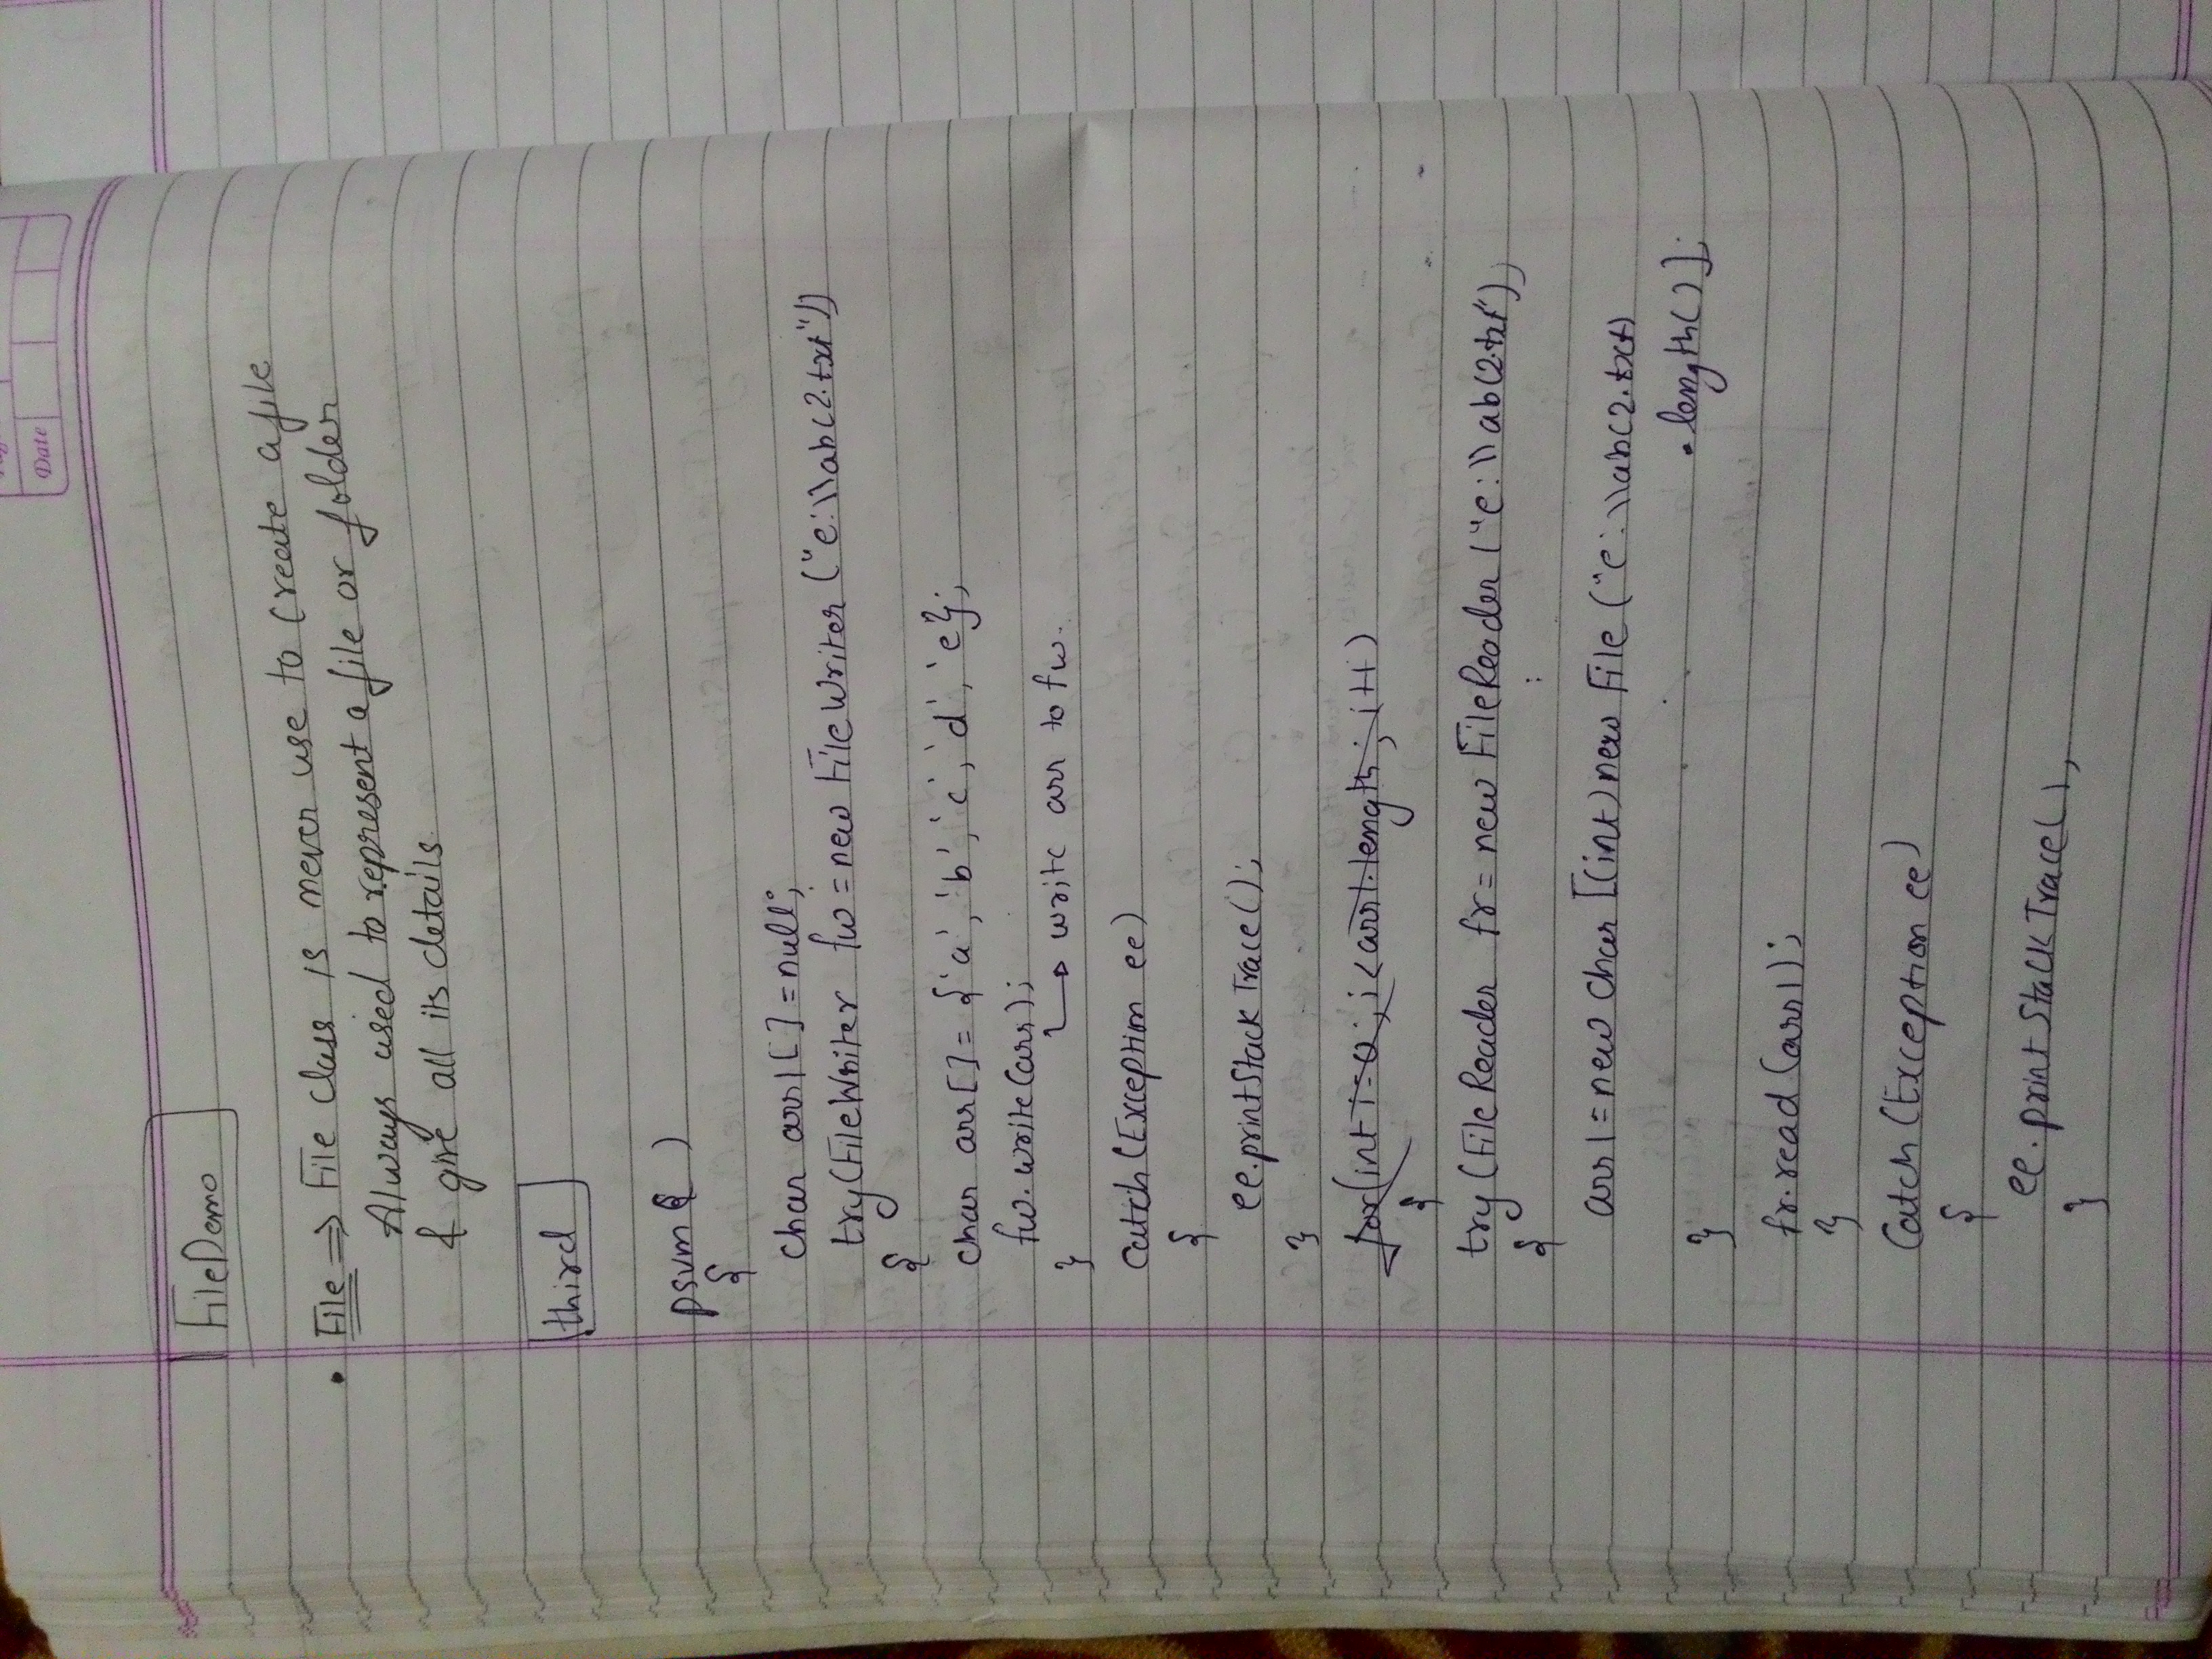 Date
FileDemo
• File ⇒ File class is never use to create a file
Always used to represent a file or folder
& give all its details.
third
psvm( )
{
char arr1[]=null;
try(FileWriter fw=new FileWriter("e:\\abc2.txt"))
{
char arr[]={'a','b','c','d','e};
fw.write(arr);
↳ write arr to fw.
}
catch(Exception ee)
{
ee.printStackTrace();
}
for(int i=0;i<arr1.length;i++)
{
try(FileReader fr=new FileReader("e:\\abc2.txt"),
{
arr1=new char[(int)new File("e:\\abc2.txt)
.length()];
}
fr.read(arr1);
}
catch(Exception ee)
{
ee.printStackTrace(),
}